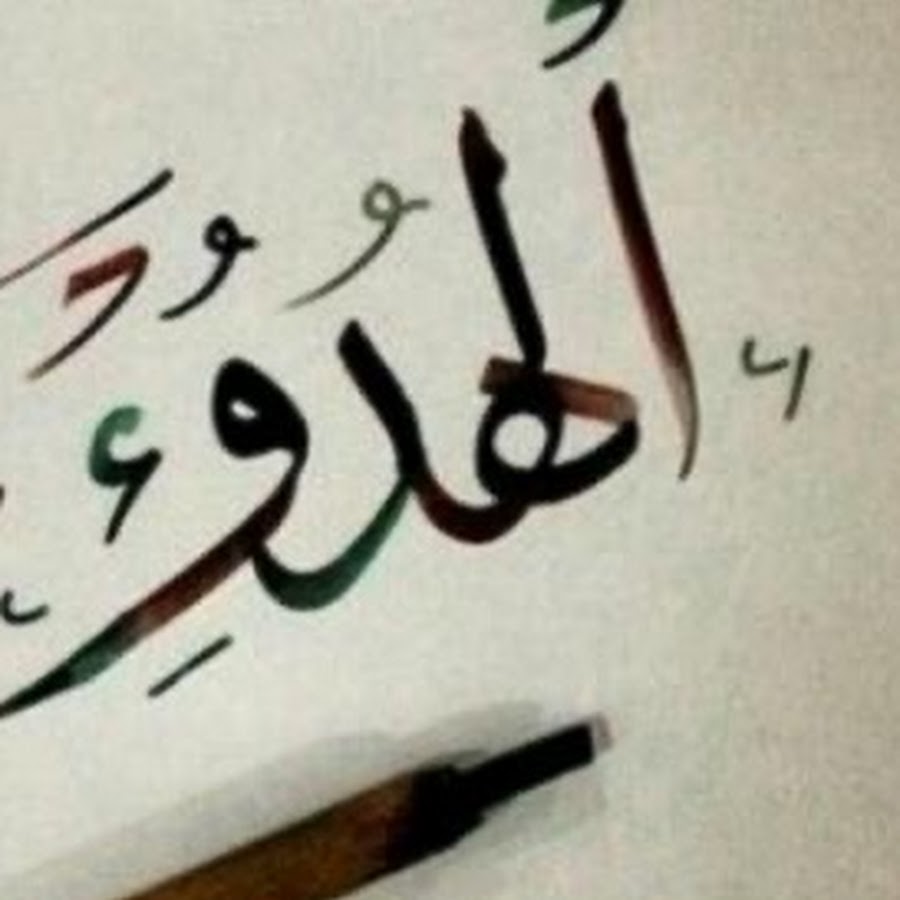 الهُدُوء